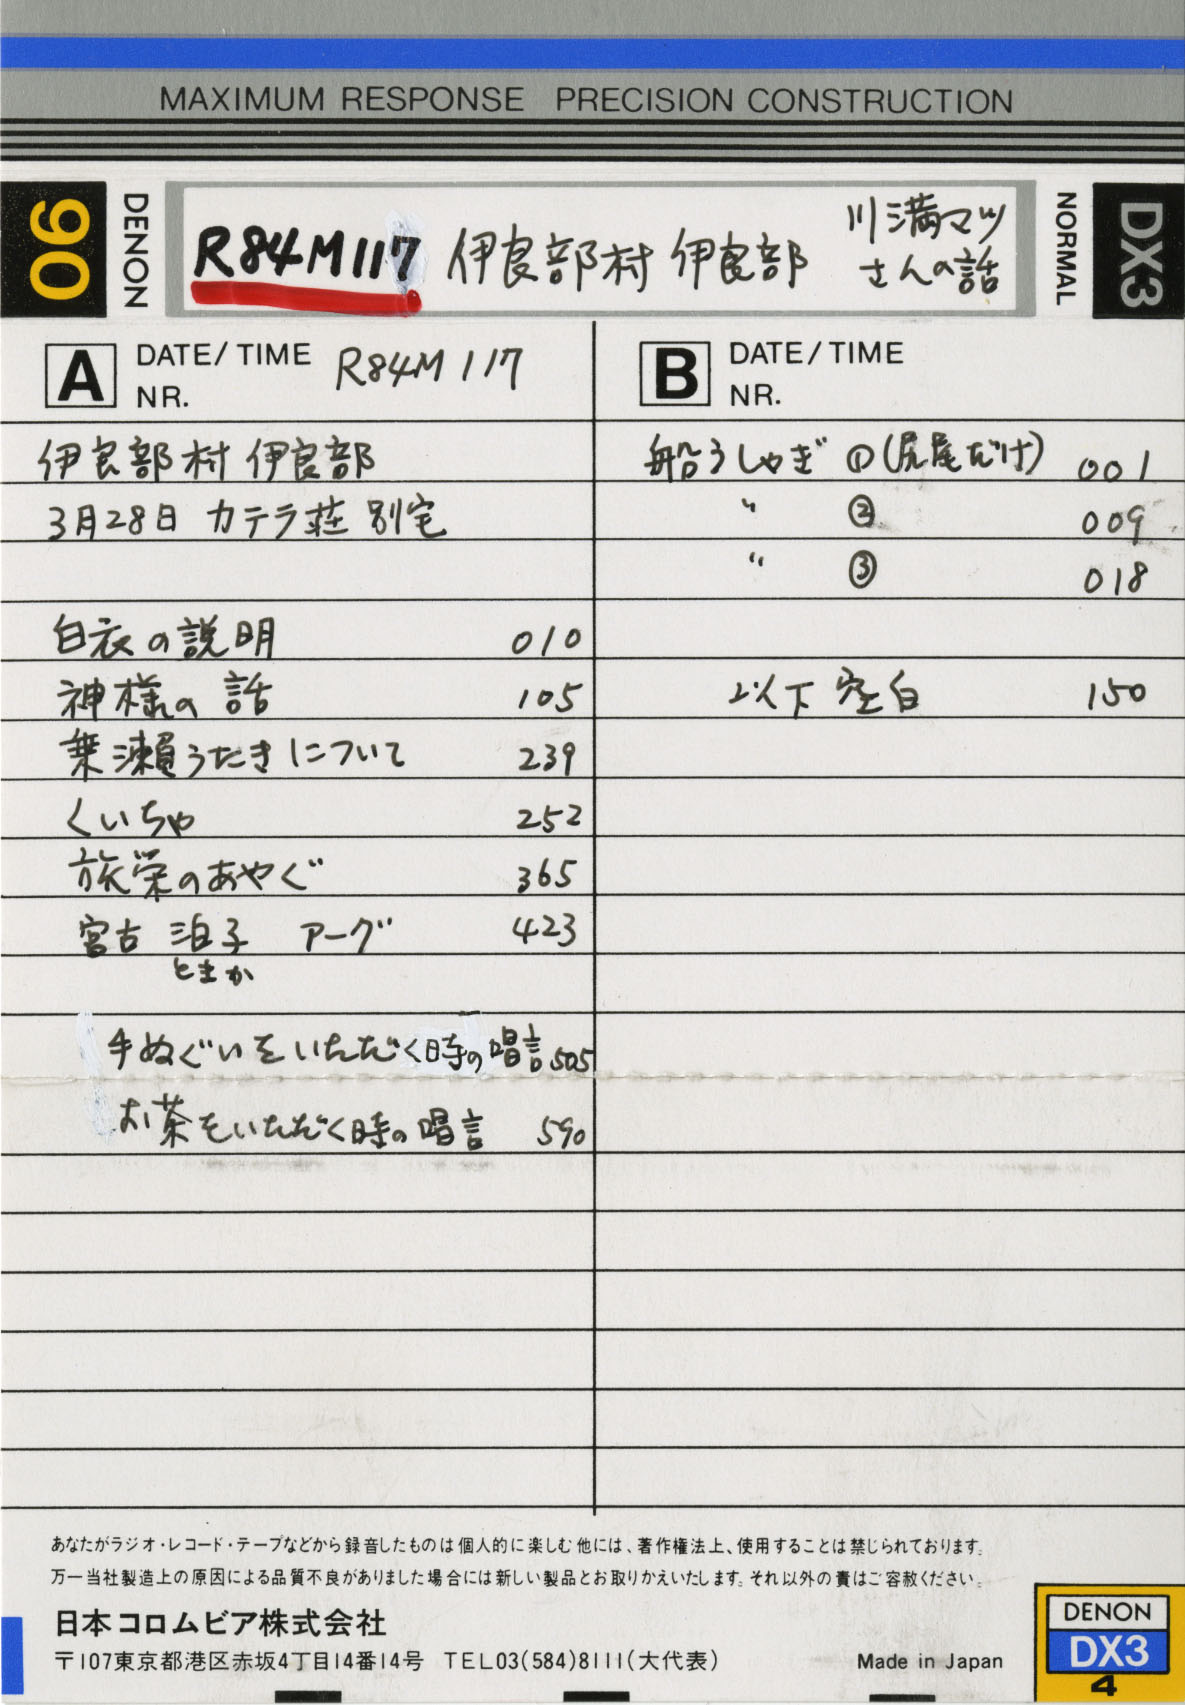 MAXIMUM RESPONSE PRECISION CONSTRUCTION
90
DENON
R84M117 伊良部村 伊良部
川満マツ
さんの話
NORMAL
DX3
A DATE/TIME
NR.
R84M117
伊良部村 伊良部
3月28日 カテラ荘 別宅
白衣の説明 010
神様の 話 105
乗瀬うたきについて 239
くいちゃ 252
旅栄のあやぐ 365
宮古 泊子 アーグ 423
とまか
手ぬぐいをいただく時の唱言 505
お茶をいただく時の唱言 590
B DATE/TIME
NR.
船うしゃぎ ①(尻尾だけ) 001
〃 ② 009
〃 ③ 018
以下 空白 150
あなたがラジオ・レコード・テープなどから録音したものは個人的に楽しむ他には、著作権法上、使用することは禁じられております。
万一当社製造上の原因による品質不良がありました場合には新しい製品とお取りかえいたします。それ以外の責はご容赦ください。
日本コロムビア株式会社
〒107東京都港区赤坂4丁目14番14号 TEL03(584)8111(大代表)
Made in Japan
DENON
DX3
4